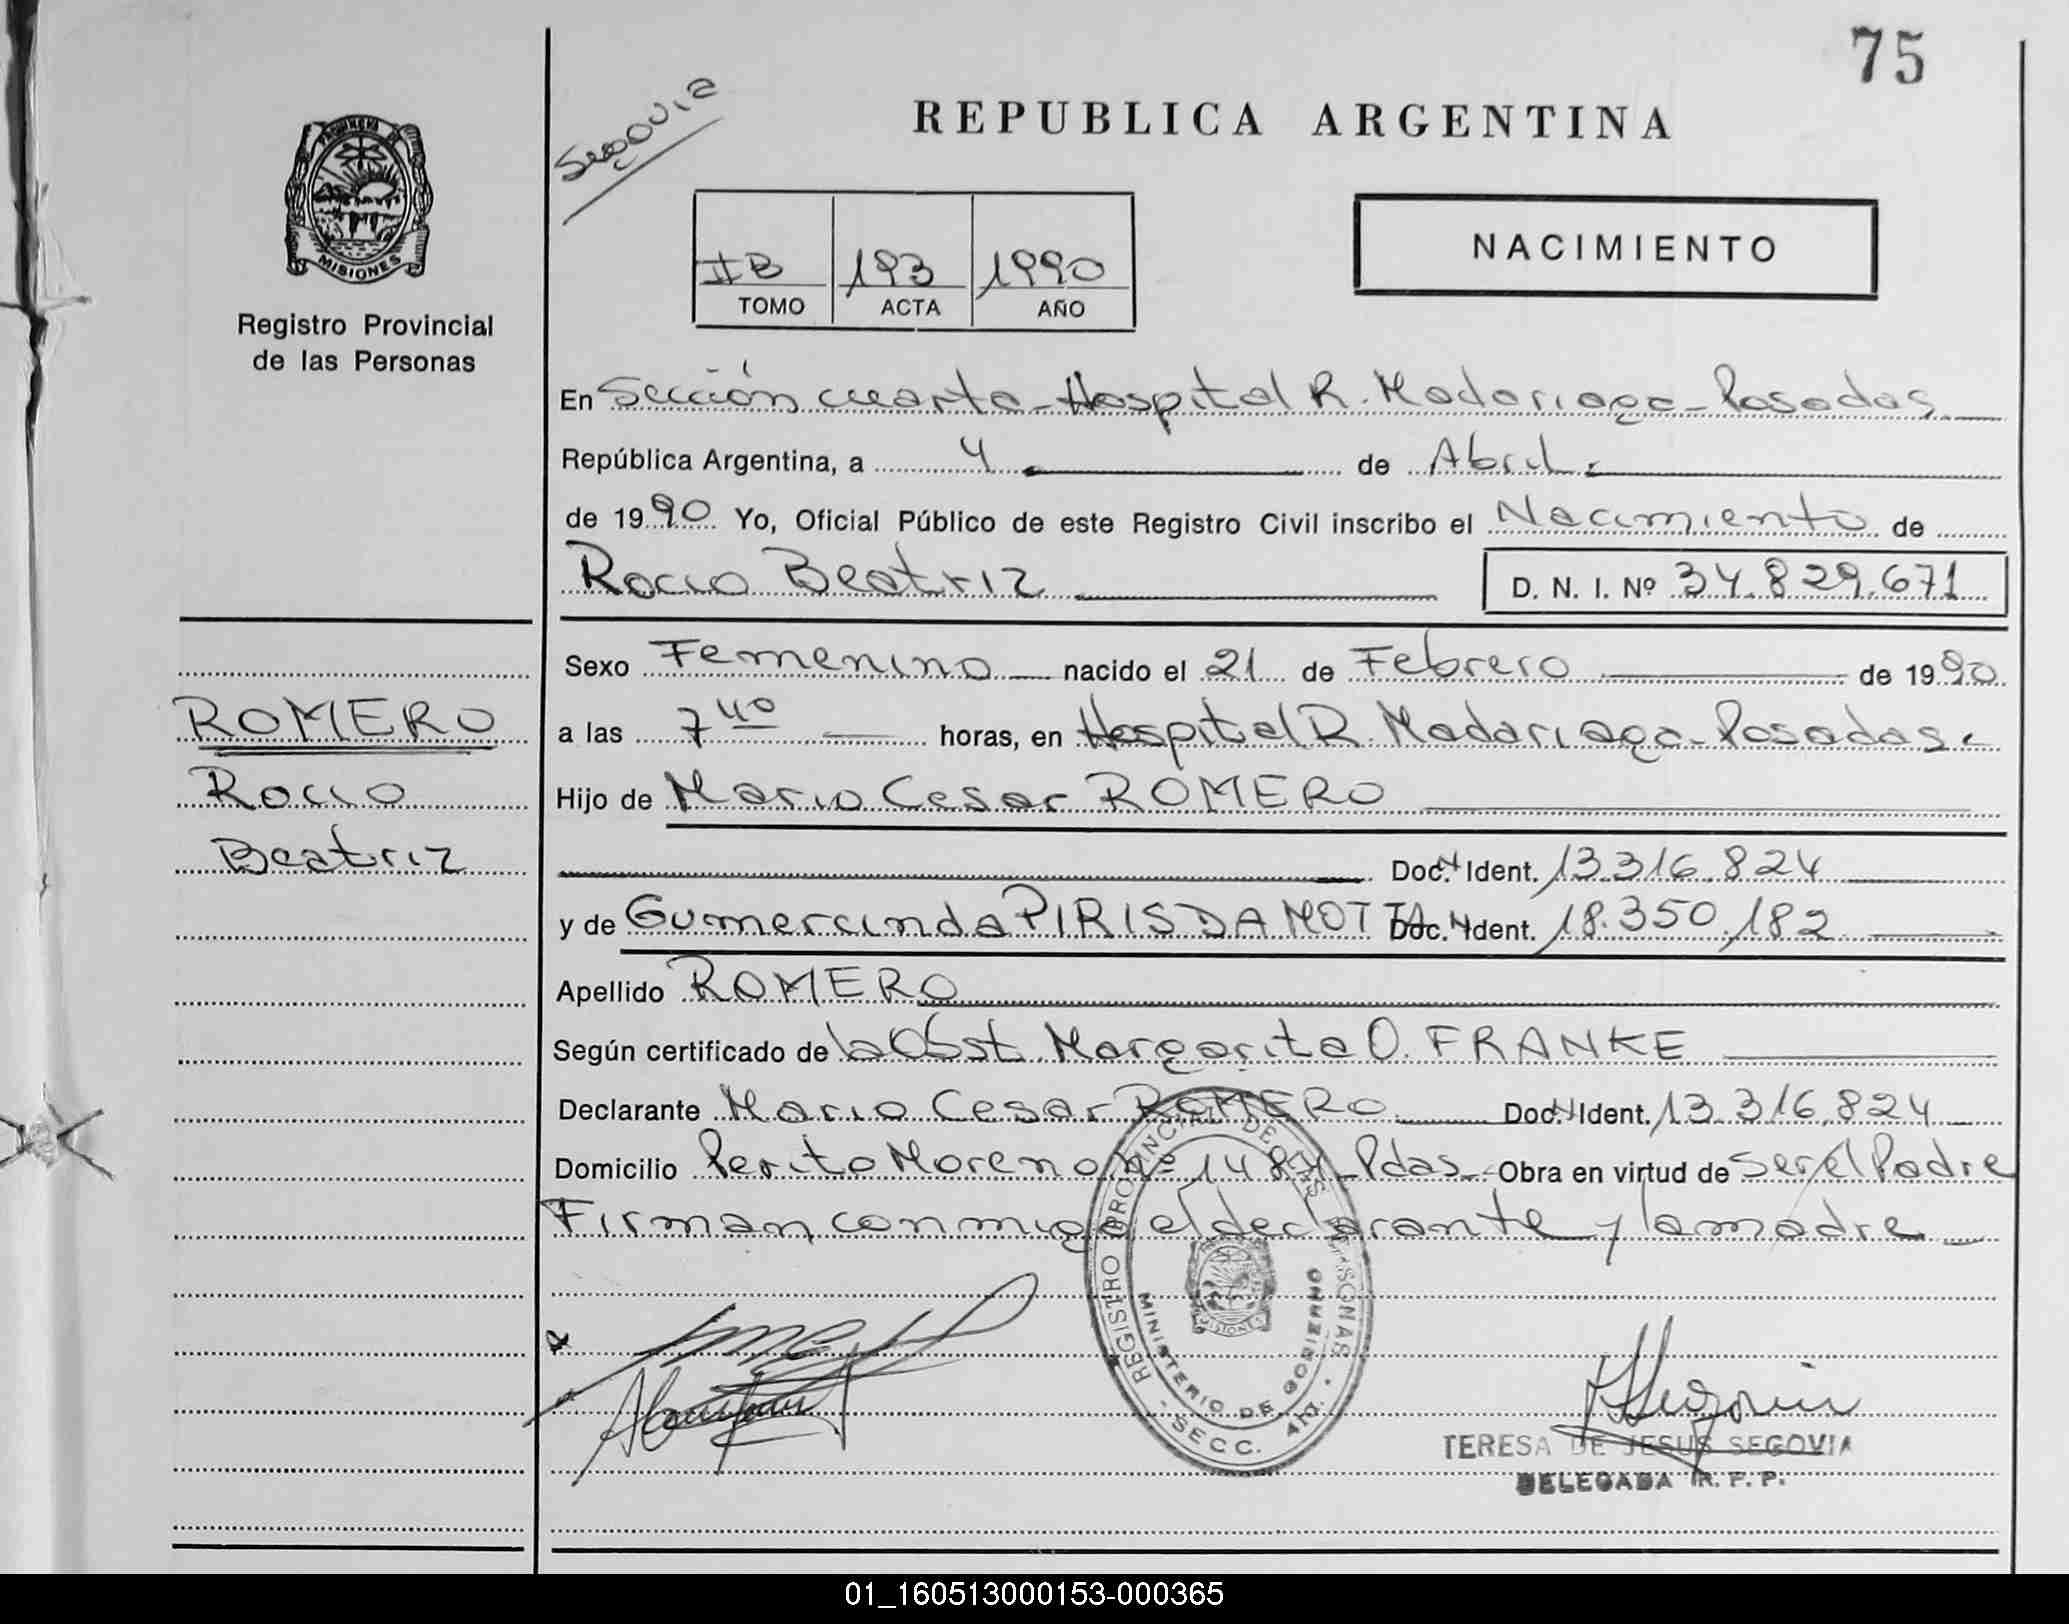 75
Segovia
REPUBLICA ARGENTINA
PROVINCIA DE
MISIONES
Registro Provincial
de las Personas
IIB 193 1990
TOMO ACTA AÑO
NACIMIENTO
En Sección cuarta - Hospital R. Madariaga - Posadas
República Argentina, a 4 de Abril
de 1990 Yo, Oficial Público de este Registro Civil inscribo el Nacimiento de
Rocio Beatriz
D. N. I. Nº 34.829.671
Sexo Femenino nacido el 21 de Febrero de 1990
ROMERO
Rocio
Beatriz
a las 7 40 horas, en Hospital R. Madariaga - Posadas
Hijo de Mario Cesar ROMERO
Doc. Ident. 13.316.824
y de Gumercinda PIRIS DA MOTTA Doc. Ident. 18.350.182
Apellido ROMERO
Según certificado de la Obst. Margarita O. FRANKE
Declarante Mario Cesar ROMERO Doc. Ident. 13.316.824
Domicilio Perito Moreno Nº Pdas - Obra en virtud de Ser el Padre
Firman conmigo el declarante y la madre
REGISTRO PROVINCIAL DE LAS PERSONAS
MINISTERIO DE GOBIERNO
MISIONES
SECC. 4ta.
TERESA DE JESUS SEGOVIA
DELEGADA R. P. P.
01_160513000153-000365